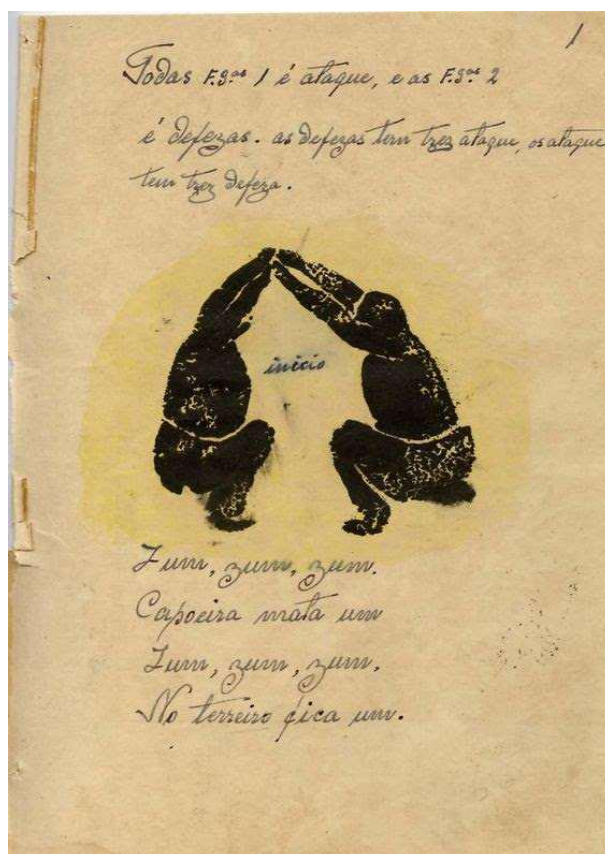 1
Todas F.gas 1 é ataque, e as F.gas 2
é defezas. as defezas tem trez ataque, os ataque
tem trez defeza.
inicio
Zum, zum, zum.
Capoeira mata um
Zum, zum, zum.
No terreiro fica um.